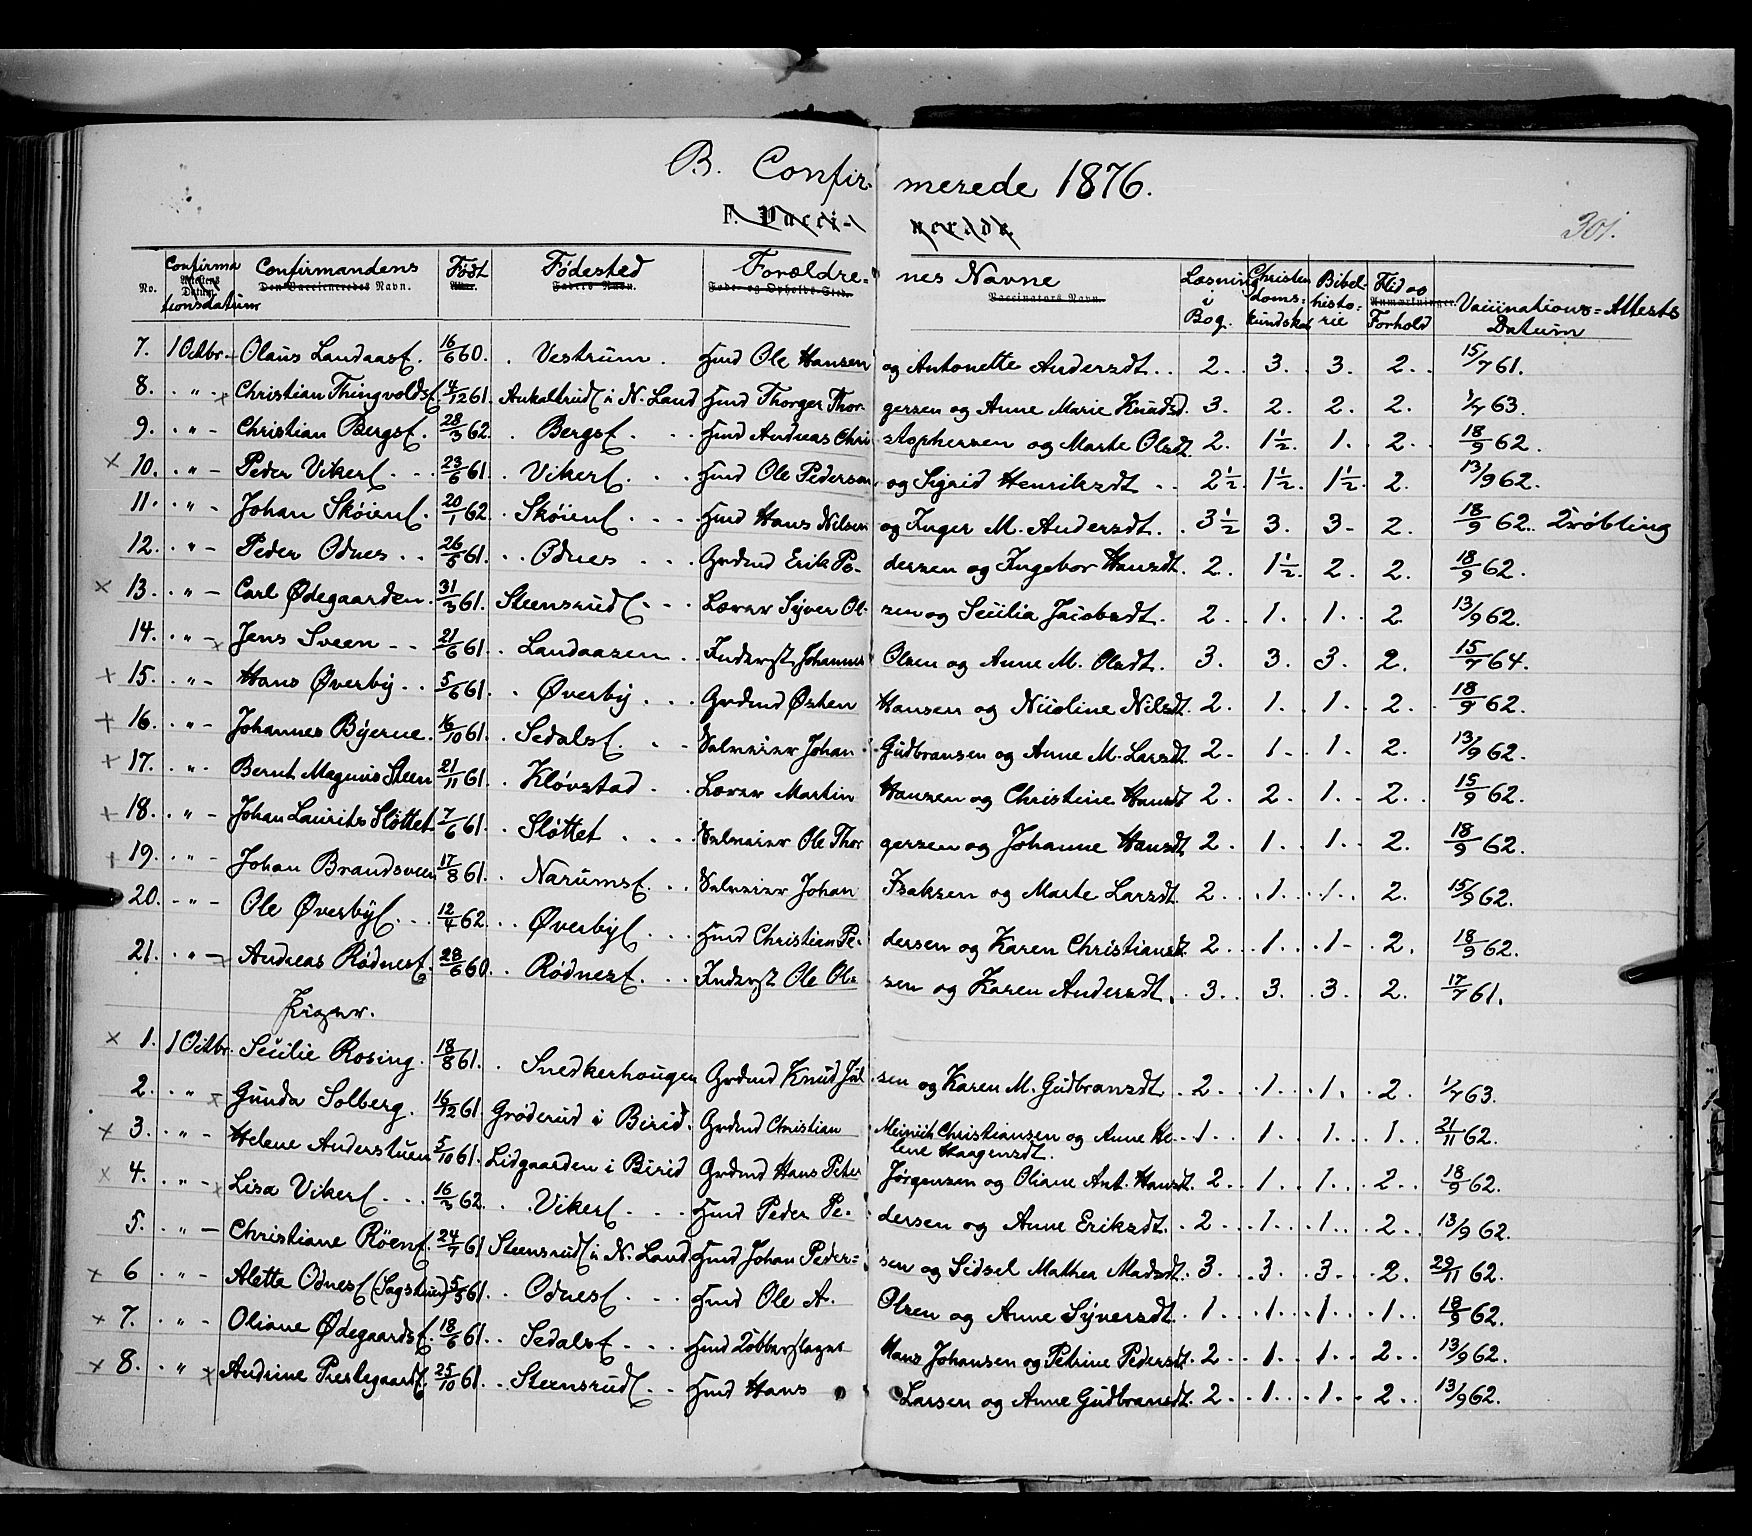 B. Confir- merede 1876.
F. Vacci- nerede.
301.
No. Confirmationsdatum Attestens Datum. Confirmandens Den Vaccineredes Navn. Født Alder. Fødested Faders Navn. Forældre- Føde- og Opholds-Sted. nes Navne Vaccinators Navn. Læsning i Bog. Christendoms- kundskab Bibel- histo- rie Flid og Forhold Anmærkninger. Vaccinations-Attests Datum
7. 1 Octbr. Olaus Landaasf. 16/6 60. Vestrum. Hmd Ole Hansen og Antonette Andersdt. 2. 3. 3. 2. 15/7 61.
8. " Christian Thingvoldsf. 4/12 61. Ankaltrudf i N. Land Hmd Thorger Thorgersen og Anne Marie Knudsd. 3. 2. 2. 2. 1/7 63.
9. " Christian Bergsf. 28/3 62. Bergsf. Hmd Andreas Christophersen og Marte Olsdt. 2. 1½. 1. 2. 18/9 62.
10. " Peder Vikerf. 23/6 61. Vikerf. Hmd Ole Pedersen og Sigrid Henriksdt. 2½. 1½. 1½. 2. 13/9 62.
11. " Johan Skøienf. 20/1 62. Skøienf. Hmd Hans Nilsen og Inger M. Andersdt. 3½ 3. 3. 2. 18/9 62. Tvøbling
12. " Peder Odnes. 26/5 61. Odnes Grdmd Erik Pedersen og Ingebor Hansdt. 2. 1½. 2. 2. 18/9 62.
13. " Carl Ødegaarden. 31/3 61. Steensrudf. Lærer Syver Olsen og Secilia Jacobsdt. 2. 1. 1. 2. 13/9 62.
14. " Jens Sveen 21/6 61. Landaasen Inderst Johannes Olsen og Anne M. Olsdt. 3. 3. 3. 2. 15/7 64.
15. " Hans Øverby. 5/6 61. Øverby Grdmd Østen Hansen og Nicoline Nilsdt. 2. 1. 1. 2. 18/9 62.
16. " Johannes Byerne. 16/10 61. Sedalsf. Selveier Johan Gudbransen og Anne M. Larsdt. 2. 1. 1. 2. 13/9 62.
17. " Bernt Magnus Steen 21/11 61. Kløvstad Lærer Martin Hansen og Christine Hansdt 2. 2. 1. 2. 15/9 62.
18. " Johan Laurits Sløttet 7/6 61. Sløttet Selveier Ole Thorgersen og Johanne Hansdt. 2. 1. 1. 2. 18/9 62.
19. " Johan Brandsveen 17/8 61. Narumsf. Selveier Johan Isaksen og Marte Larsdt. 2. 1. 1. 2. 15/9 62.
20. " Ole Øverbyf. 12/4 62. Øverbyf Hmd Christian Pedersen og Karen Christiansdt. 2. 1. 1. 2. 18/9 62.
21. " Andreas Rødnesf. 28/6 60. Rødnesf. Inderst Ole Olsen og Karen Andersdt. 3. 3. 3. 2. 17/7 61.
Piger.
1. 1 Octbr. Secilie Rosing. 18/8 61. Snedkerhougen Grdmd Knud Julsen og Karen M. Gudbransdt. 2. 1. 1. 2. 1/7 63.
2. " Gunda Solberg. 16/12 61. Grøderud i Birid. Grdmd Christian Meinich Christiansen og Anne Helene Haagensdt. 1. 1. 1. 1. 21/11 62.
3. " Helene Anderstuen 5/10 61. Lidgaarden i Birid Grdmd Hans Peter Jørgensen og Oliane Ant. Hansdt. 2. 1. 1. 2. 18/9 62.
4. " Lisa Vikerf. 16/3 62. Vikerf Hmd Peder Pedersen og Anne Eriksdt. 2. 1. 1. 2. 13/9 62.
5. " Christiane Røenf. 24/7 61 Steensrudf i N. Land. Hmd Johan Pedersen og Sidsel Mathea Madsdt. 3. 3. 3. 2. 29/11 62.
6 " Aletta Odnesf (Sagstuen) 5/5 61. Odnesf. Hmd Ole A. Olsen og Anne Syversdt. 1. 1. 1. 1. 18/9 62.
7. " Oliane Ødegaardsf. 18/6 61. Sedalsf. Hmd Kobberslager Hans Johansen og Petrine Pedersdt. 2. 1. 1. 2. 13/9 62.
8. " Andrine Prestegaardf. 25/10 61. Steensrudf. Hmd Hans Larsen og Anne Gudbransdt. 2. 1. 1. 2. 13/9 62.